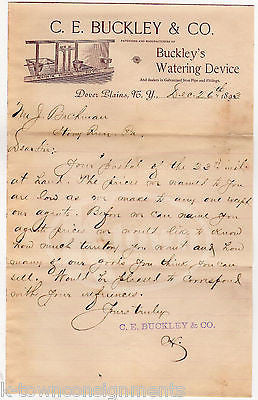 C. E. BUCKLEY & CO.
PATENTEES AND MANUFACTURERS OF
Buckley's
Watering Device
And dealers in Galvanized Iron Pipe and Fittings.
Dover Plains, N. Y., Dec. 26th 1893
Mr J. Buchman
Stony Run, Pa.
Dear Sir:
Your postal of the 23rd inst.
at hand. The prices we named to you
are low as we make to any one except
our agents. Before we can name you
agent prices we would like to know
how much territory you want and how
many of our goods you think you can
sell. Would be pleased to correspond
with your references.
Yours truly
C. E. BUCKLEY & CO.
k-townconsignments